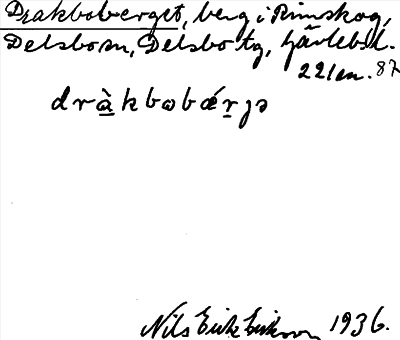 Drakboberget, berg i Rimskog,
Delsbo sn, Delsbo tg, Gävlebsl.
22/en. 87
dràkbobǽrjə
Nils Erik Eriksson 1936.